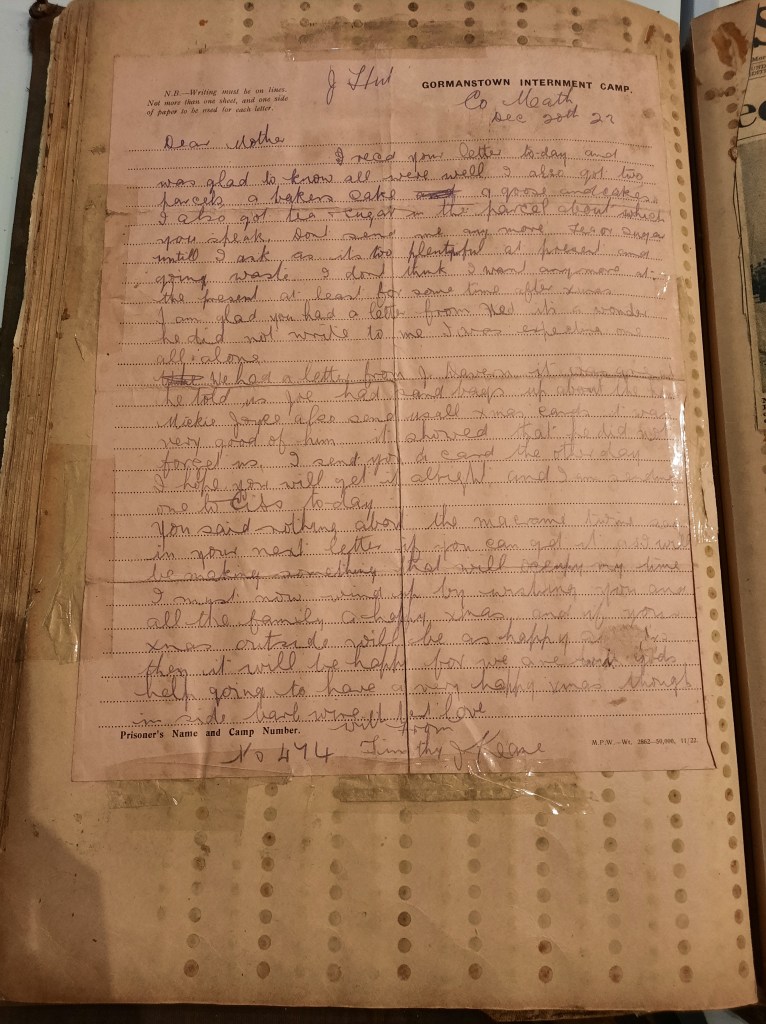 N.B.—Writing must be on lines.
Not more than one sheet, and one side
of paper to be used for each letter.
J Hut
GORMANSTOWN INTERNMENT CAMP.
Co Meath
Dec 20th 22
Dear Mother
I recd your letter to-day and
was glad to know all were well I also got two
parcels a bakers cake a goose and cakes
I also got tea + sugar in the parcel about which
you speak. Dont send me any more tea or sugar
untill I ask as its too plentyful at present and
going waste. I dont think I want any more at
the present at least for some time after xmas
I am glad you had a letter from Ned its a wonder
he did not write to me I was expecting one
all alone
We had a letter from J
he told us he had sand bags up about the
Mickie Joyce also send us all xmas cards it was
very good of him it showed that he did not
forget us. I send you a card the other day
I hope you will get it alright and I am
one to Cibs to-day
You said nothing about the macrame twine
in your next letter if you can get it
be making something that will occupy my time
I must now wind up by wishing you and
all the family a happy xmas and if your
xmas outside will be as happy as
then it will be happy for we are with gods
help going to have a very happy xmas though
in side barb wire
with love
from
Prisoner's Name and Camp Number.
No 474 Timothy J Keane
M.P.W.—Wt. 2862—50,000, 11/22.